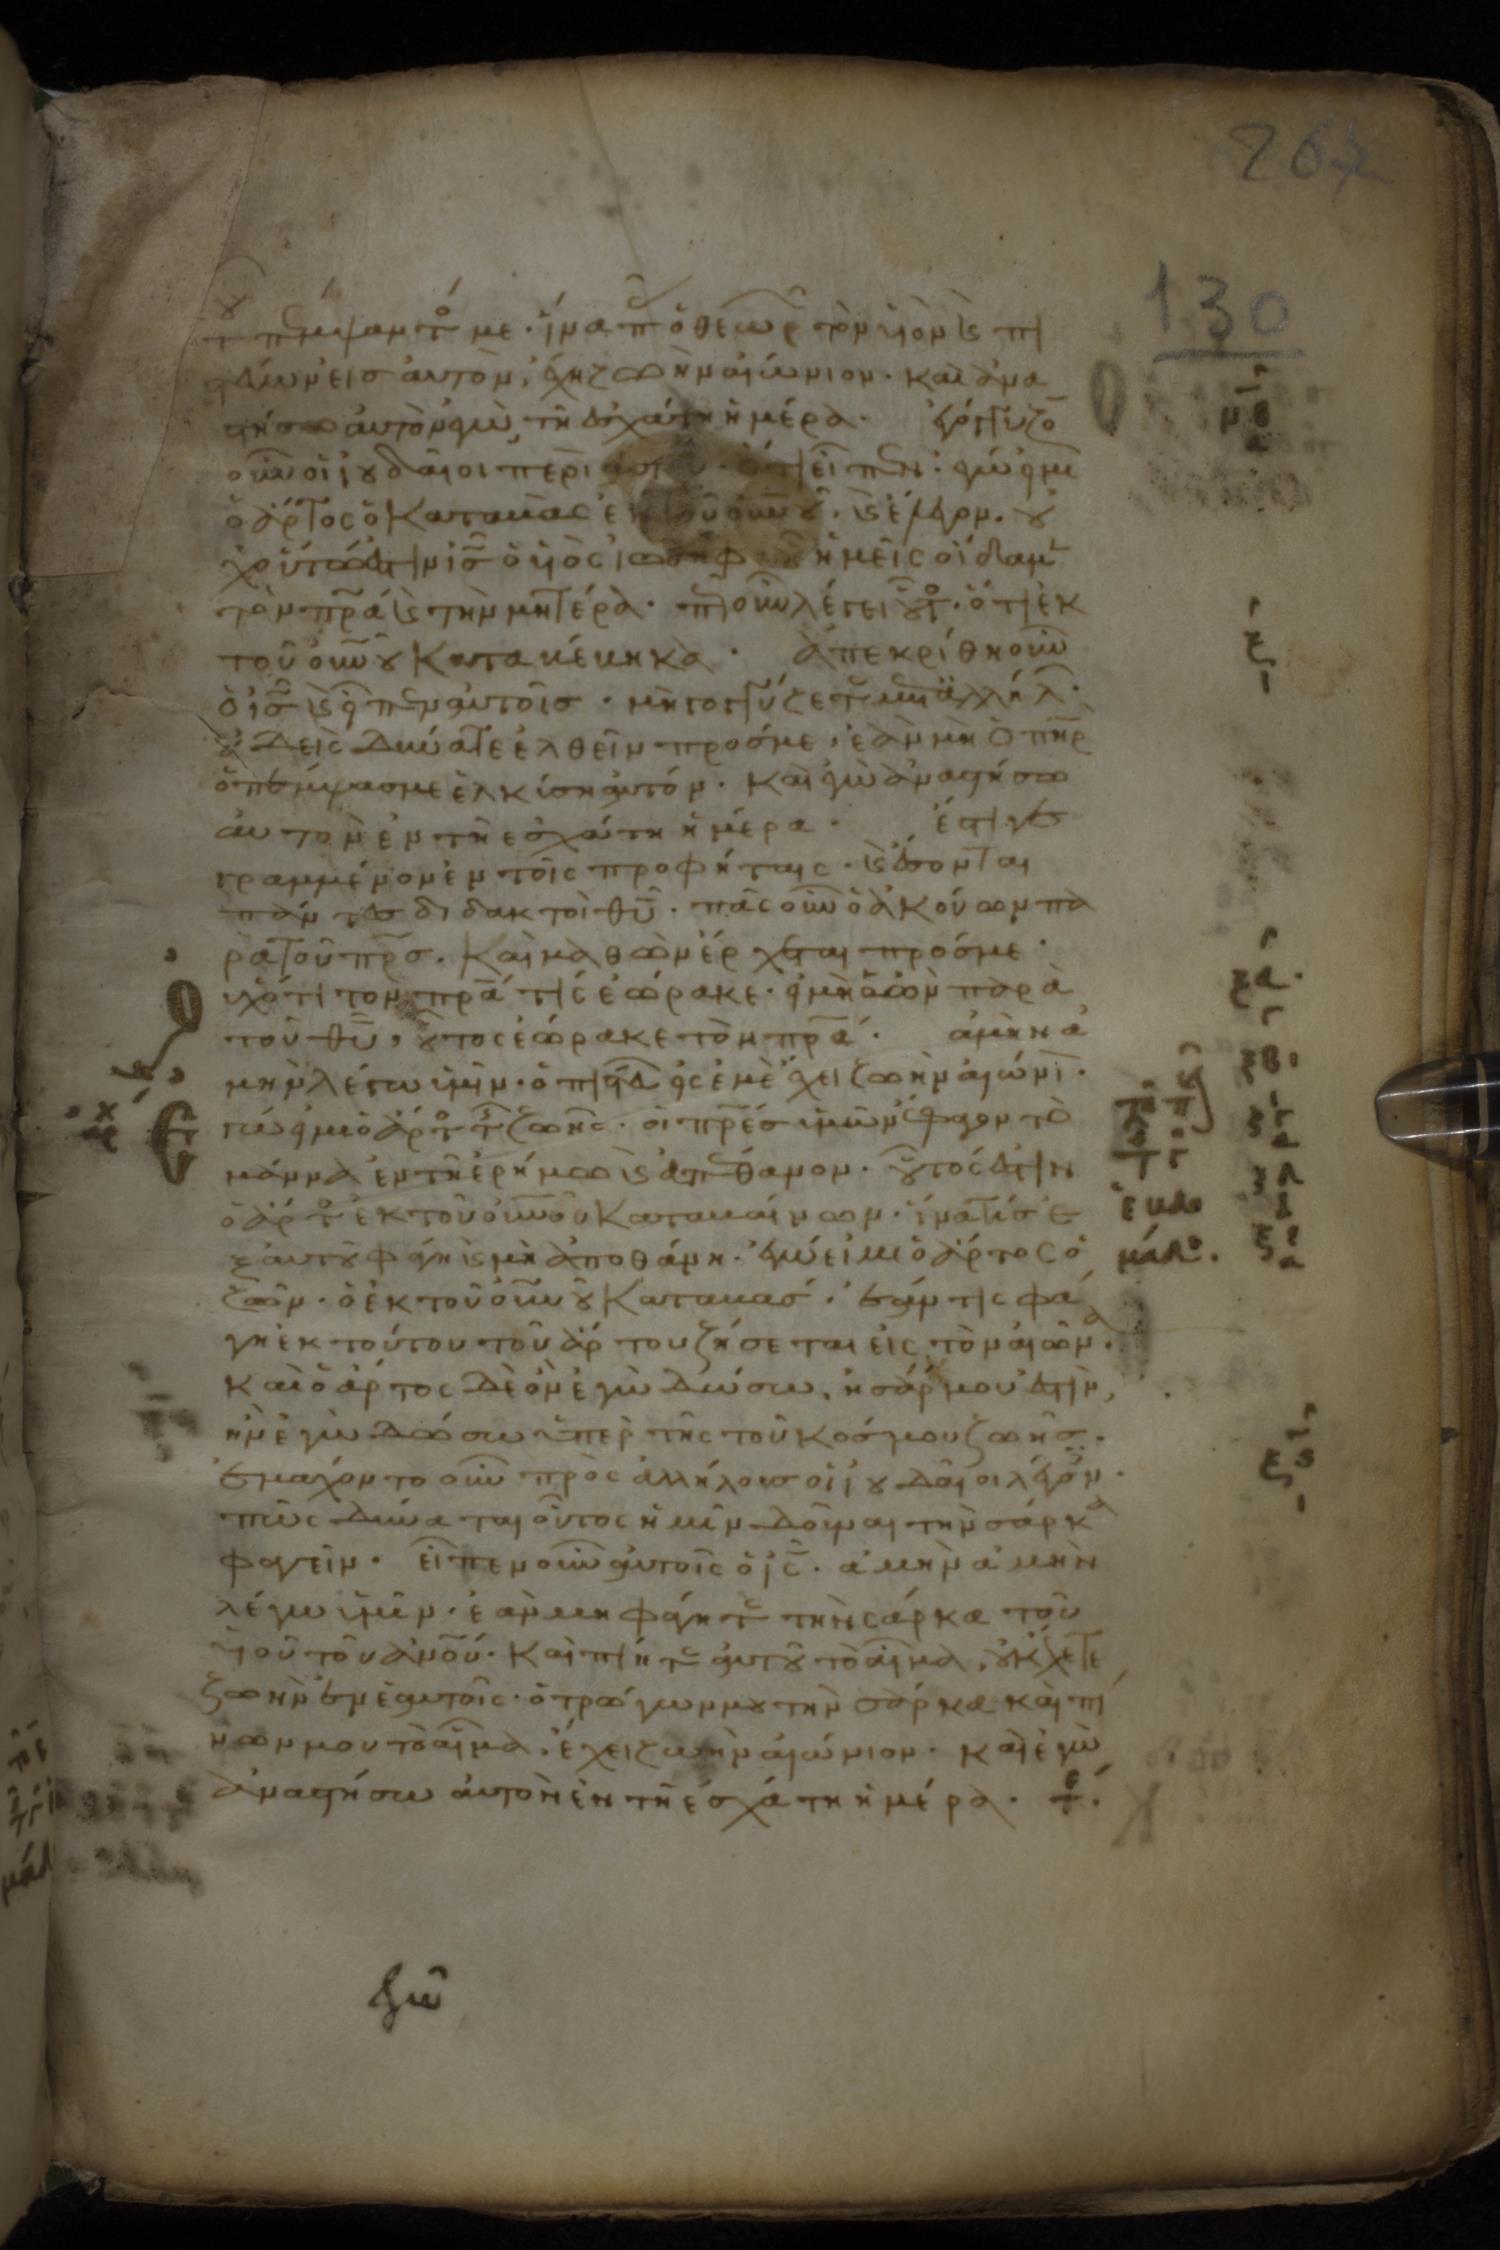 267
130
τοῦ πέμψαντός με· ἵνα πᾶς ὁ θεωρῶν τὸν υἱὸν καὶ πι
στεύων εἰς αὐτὸν, ἔχη ζωὴν αἰώνιον· καὶ ἀνα
στήσω αὐτὸν ἐγὼ τῆ ἐσχάτη ἡμέρα· ἐγόγγυζον
οὖν οἱ ἰουδαῖοι περὶ αὐτοῦ· ὅτι εἶπεν· ἐγώ εἰμι
ὁ ἄρτος ὁ καταβὰς ἐκ τοῦ οὐνοῦ· καὶ ἔλεγον· οὐ
χ οὗτός ἐστιν ἰς ὁ υἱὸς ἰωσὴφ οὗ ἡμεῖς οἴδαμεν
τὸν πρα καὶ τὴν μητέρα· πῶς οὖν λέγει οὗτος· ὅτι ἐκ
τοῦ οὐνοῦ καταβέβηκα· ἀπεκρίθη οὖν
ὁ ἰς καὶ εἶπεν αὐτοῖς· μὴ γογγύζετε μετ ἀλλήλων·
οὐδεὶς δύναται ἐλθεῖν πρός με, ἐὰν μὴ ὁ πηρ
ὁ πέμψας με ἑλκύση αὐτόν· καὶ ἐγὼ ἀναστήσω
αὐτὸν ἐν τῆ ἐσχάτη ἡμέρα· ἔστι γε
γραμμένον ἐν τοῖς προφήταις· καὶ ἔσονται
πάντες διδακτοὶ θυ· πᾶς οὖν ὁ ἀκούων πα
ρὰ τοῦ πρς· καὶ μαθὼν ἔρχεται πρός με·
οὐχ ὅτι τὸν πρα τὶς ἑώρακε· εἰ μὴ ὁ ὢν παρὰ
τοῦ θυ, οὗτος ἑώρακε τὸν πρα· ἀμὴν ἀ
μὴν λέγω ὑμῖν· ὁ πιστεύων εἰς ἐμὲ ἔχει ζωὴν αἰώνιον·
ἐγώ εἰμι ὁ ἄρτος τῆς ζωῆς· οἱ πρες ὑμῶν ἔφαγον τὸ
μάννα ἐν τῆ ἐρήμω καὶ ἀπέθανον· οὗτός ἐστιν
ὁ ἄρτος ὁ ἐκ τοῦ οὐνοῦ καταβαίνων· ἵνα τὶς ἐ
ξ αὐτοῦ φάγη καὶ μὴ ἀποθάνη· ἐγώ εἰμι ὁ ἄρτος ὁ
ζῶν· ὁ ἐκ τοῦ οὐνοῦ καταβάς· ἐάν τις φά
γη ἐκ τούτου τοῦ ἄρτου ζήσεται εἰς τὸν αἰῶνα·
καὶ ὁ ἄρτος δὲ ὃν ἐγὼ δώσω, ἡ σάρξ μου ἐστὶν,
ἣν ἐγὼ δώσω ὑπὲρ τῆς τοῦ κόσμου ζωῆς·
ἐμάχοντο οὖν πρὸς ἀλλήλους οἱ ἰουδαῖοι λέγοντες·
πῶς δύναται οὗτος ἡμῖν δοῦναι τὴν σάρκα
φαγεῖν· εἶπεν οὖν αὐτοῖς ὁ ἰς· ἀμὴν ἀμὴν
λέγω ὑμῖν· ἐὰν μὴ φάγητε τὴν σάρκα τοῦ
υἱοῦ τοῦ ἀνου· καὶ πίητε αὐτοῦ τὸ αἷμα, οὐκ ἔχετε
ζωὴν ἐν ἑαυτοῖς· ὁ τρώγων μου τὴν σάρκα καὶ πί
νων μου τὸ αἷμα, ἔχει ζωὴν αἰώνιον· καὶ ἐγὼ
ἀναστήσω αὐτὸν ἐν τῆ ἐσχάτη ἡμέρα·